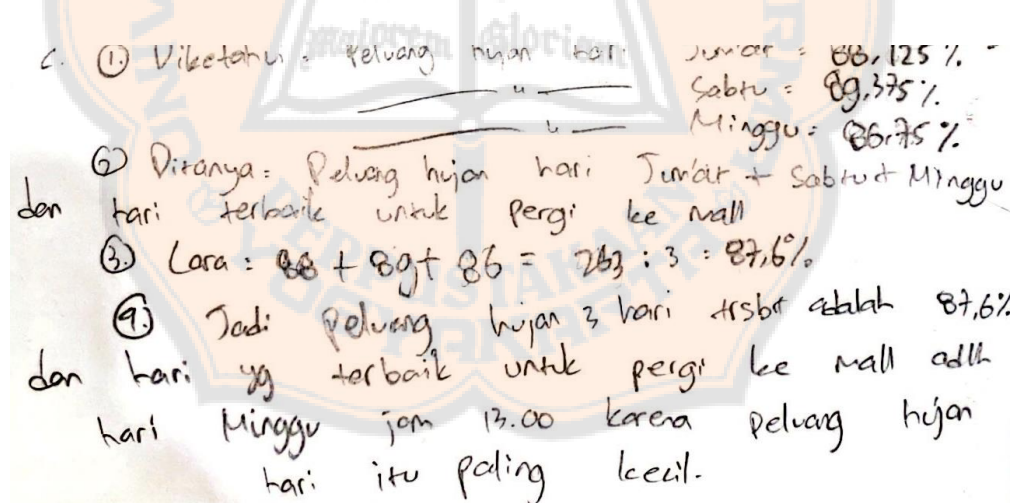 c. ① Diketahui = Peluang hujan hari Jum'at = 88,125 %
—— " —— Sabtu = 89,375 %
—— " —— Minggu = 86,75 %
② Ditanya = Peluang hujan hari Jum'at + Sabtu + Minggu
dan hari terbaik untuk pergi ke mall
③ Cara = 88 + 89 + 86 = 263 : 3 = 87,6%
④ Jadi peluang hujan 3 hari trsbt adalah 87,6%
dan hari yg terbaik untuk pergi ke mall adlh
hari Minggu jam 13.00 karena peluang hujan
hari itu paling kecil.